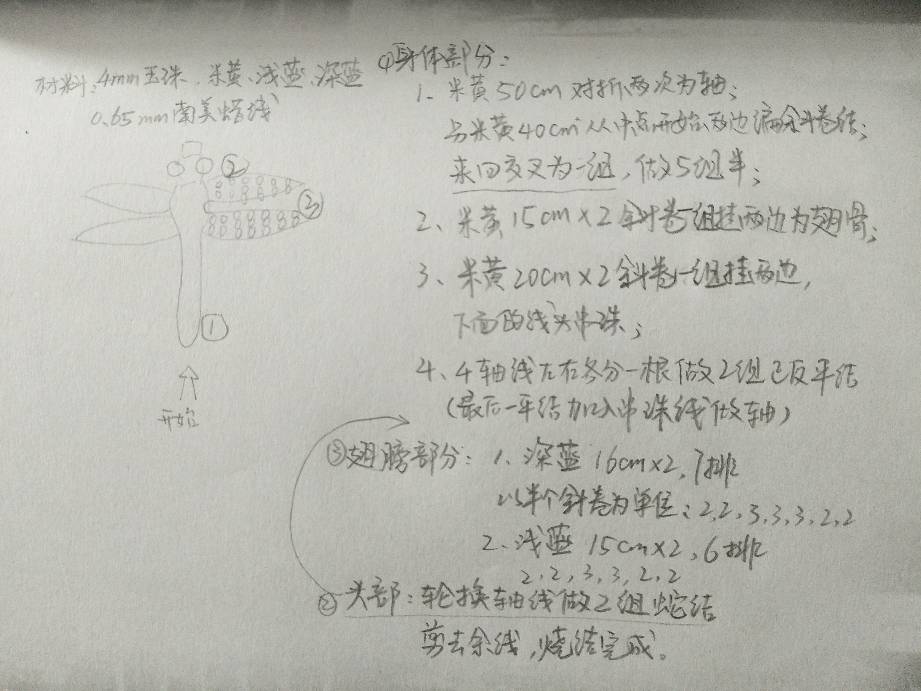 材料:4mm玉珠、米黄、浅蓝、深蓝
0.65mm南美蜡线
②
③
①
开始
①身体部分:
1、米黄50cm对折两次为轴;
与米黄40cm从中点开始两边编斜卷结;
来回交叉为一组,做5组半;
2、米黄15cm×2斜卷一组挂两边为翅骨;
3、米黄20cm×2斜卷一组挂两边,
下面的线头串珠;
4、4轴线左右各分一根做2组正反平结
(最后一平结加入串珠线做轴)
③翅膀部分:1、深蓝16cm×2,7排
以半个斜卷为单位:2,2,3,3,3,2,2
2、浅蓝15cm×2,6排
2,2,3,3,2,2
②头部:轮换轴线做2组蛇结
剪去余线,烧结完成。